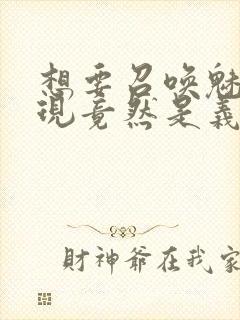 想要召喚魅
現竟然是義
財神爺在我家